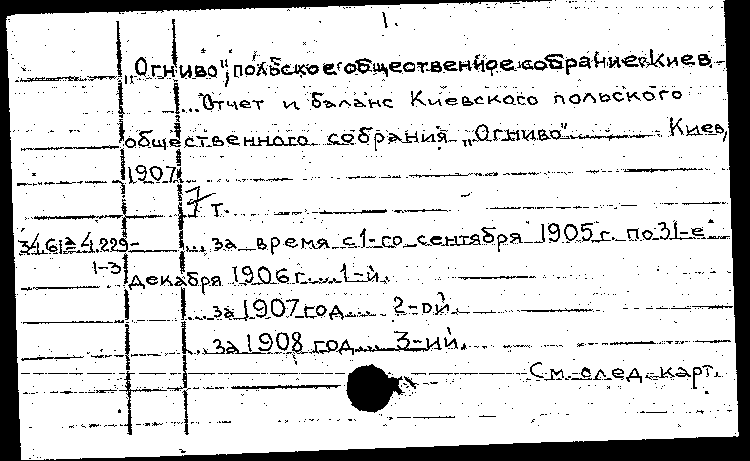 1.
„Огниво", польское общественное собрание. Киев.
...Отчет и баланс Киевского польского
общественного собрания „Огниво"........ Киев,
1907
7 т.
34.61ª 4.229- ...за время с 1-го сентября 1905 г. по 31-е
1-3 декабря 1906 г.... 1-й.
...за 1907 год... 2-ой.
...за 1908 год... 3-ий.
См. след. карт.